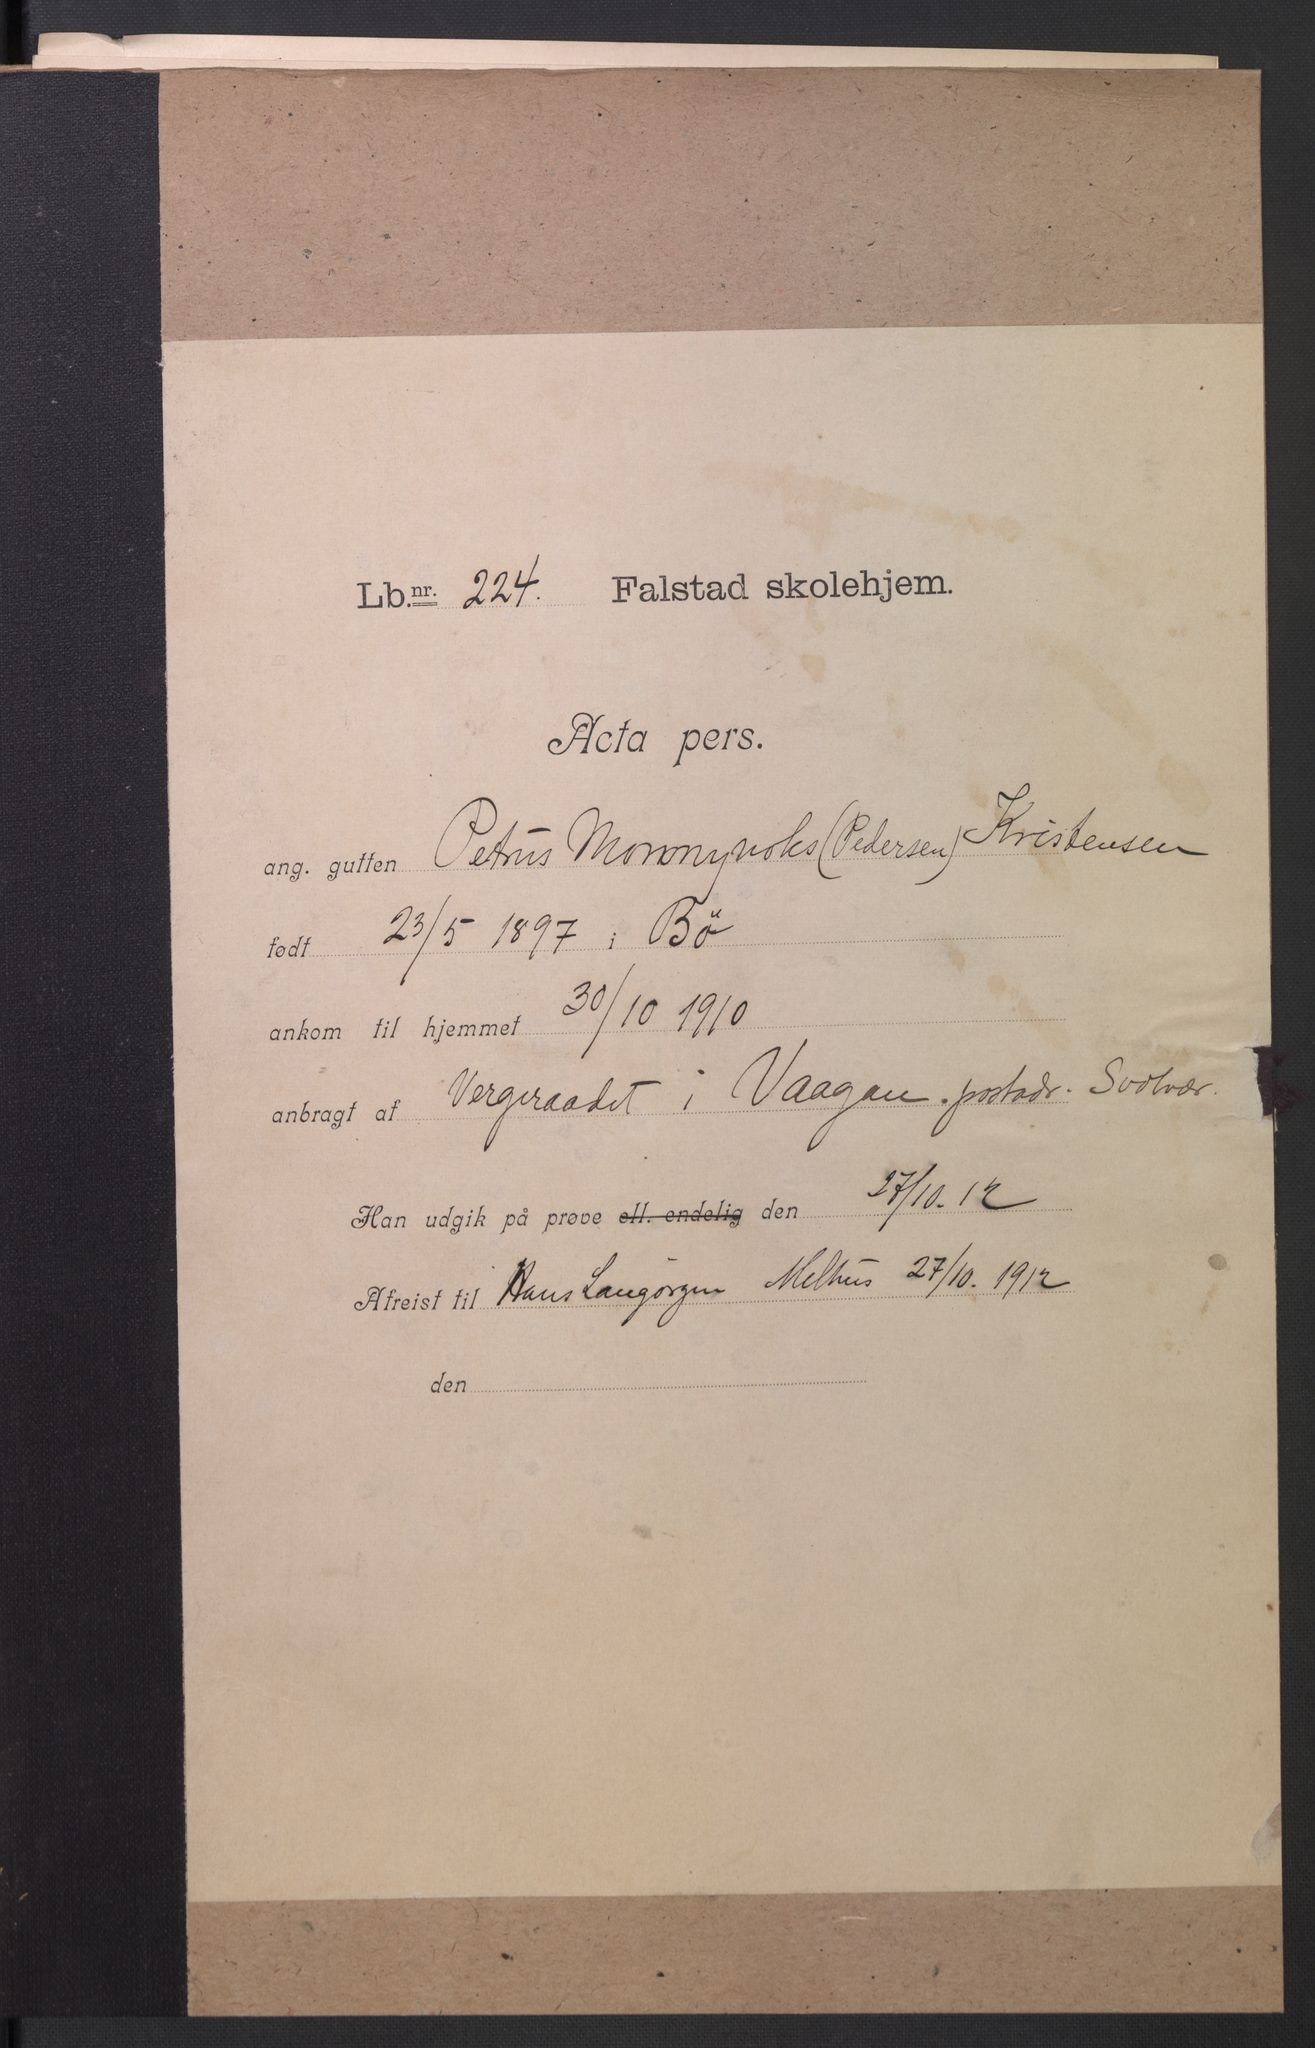 Lb.nr. 224. Falstad skolehjem.
Acta pers.
ang. gutten Petrus (Pedersen) Kristensen
født 23/5 1897 i Bö
ankom til hjemmet 30/10 1910
anbragt af Vergeraadet i Vaagan. postadr. Svolvær.
Han udgik på prøve ell. endelig den 27/10. 12
Afreist til Hans Langørgen Melhus 27/10. 1912
den